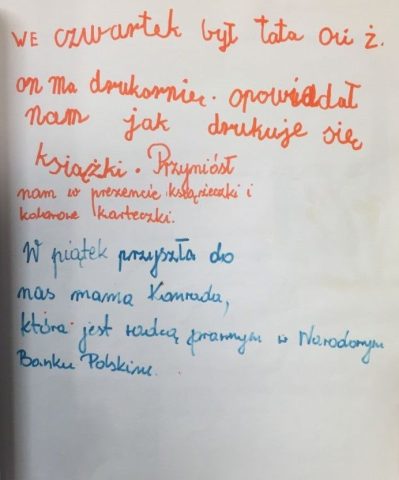 WE czwartek był tata Ori ż.
on ma drukarnię. opowiadał
nam jak drukuje się
książki. Przyniósł
nam w prezencie książeczki i
kolorowe karteczki.
W piątek przyszła do
nas mama Konrada,
która jest radcą prawnym w Narodowym
Banku Polskim.